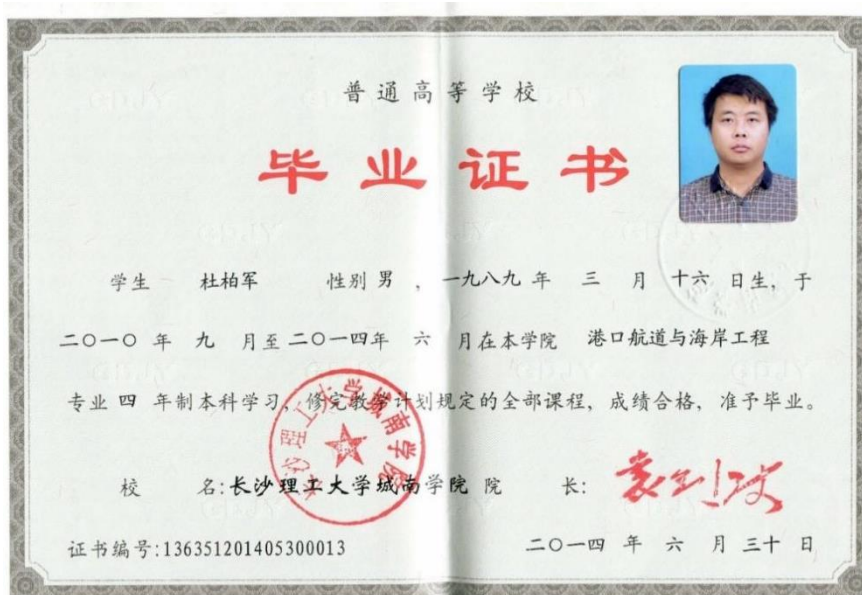 普通高等学校
毕业证书
学生 杜柏军 性别 男 ，一九八九 年 三 月 十六 日生，于
二〇一〇 年 九 月至 二〇一四年 六 月在本学院 港口航道与海岸工程
专业 四 年制本科学习，修完教学计划规定的全部课程，成绩合格，准予毕业。
长沙理工大学城南学院
校 名:长沙理工大学城南学院 院 长:
证书编号:136351201405300013
二〇一四 年 六 月 三十 日